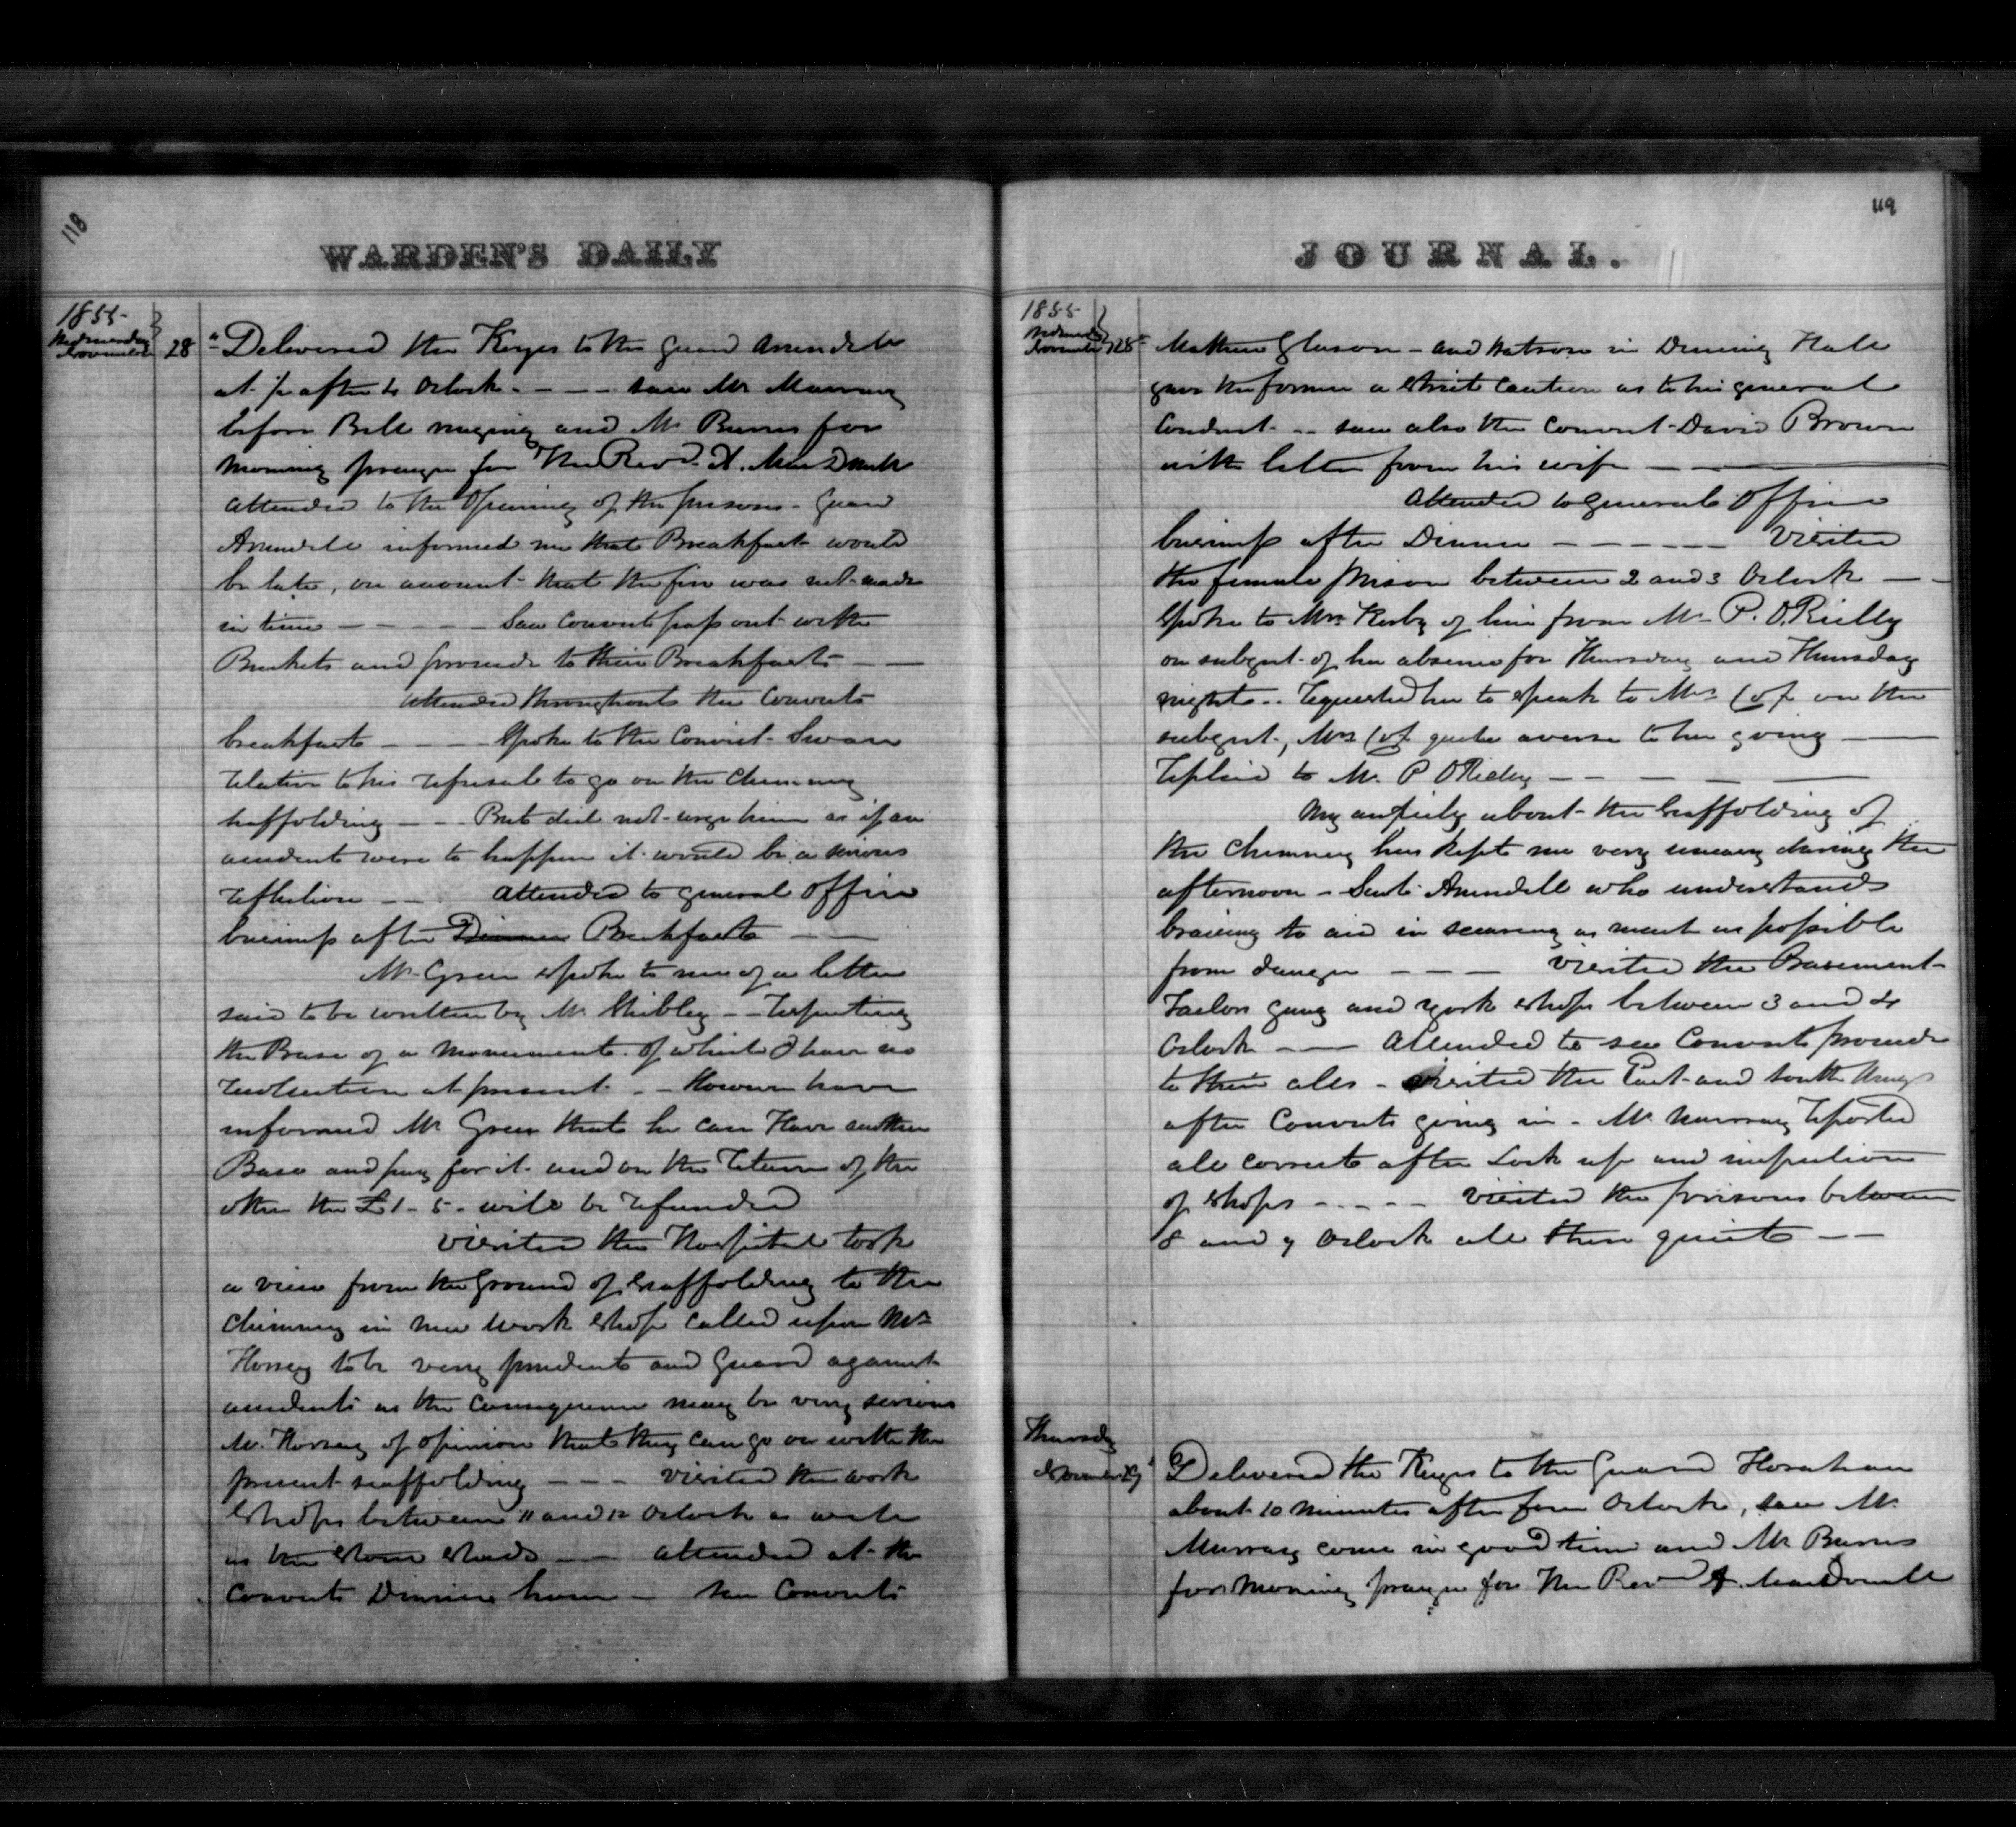 118
WARDEN'S DAILY
1855
Wednesday
November 28
Delivered the Keyes to the Guard Arundele
at after 4 Oclock - - - saw Mr Murray
before Bell ringing and Mr Burns for
morning prayer for The Revd A. MacDnell
attended to the Opening of the prisons - Guard
Arundele informed me that Breakfast would
be late, on account that the fire was not made
in time - - - - - Saw Convicts pass out with
Buckets and proceede to their Breakfasts - -
attended throughout the Convicts
breakfasts - - - Spoke to the Convict Swan
relative to his refusal to go on the Chimney
scaffolding - - But did not urge him as if an
accident were to happen it would be a serious
reflection - - . attended to general office
business after Dinner Breakfasts - -
Mr Green spoke to me of a letter
said to be written by Mr Shibley - -
the Base of a Monument. Of which I have no
recollection at present - - However have
informed Mr Green that he can Have another
Base and pay for it and on the return of the
other the £1 - 5 - will be refunded
Visited the Hospital took
a view from the Ground of Scaffolding to the
Chimney in new work shop called upon Mr
Horsey to be very prudent and Guard against
accidents as the Consequence may be very serious
Mr. Horsey of opinion that they can go on with the
present scaffolding - - - visited the work
shops between 11 and 12 Oclock as well
as the stone sheds - - attended at the
Convicts Dinner hour - saw Convicts
119
JOURNAL.
1855
Wednesday
November 28
Mathew Gleason - and Watson in Dinning Hall
gave the former a strict Caution as to his general
Conduct - - saw also the Convict David Brown
with letter from his wife - -
attended to general office
business after Dinner - - - - - Visited
the female prison between 2 and 3 Oclock - -
Spoke to Mrs Kerby of line from Mr P. O.Rielly
on subject of her absence for Thursday and Thursday
night - . requested her to speak to Mrs Cox on the
subject, Mrs Cox quite averse to her going -
replied to Mr. P O Rieley - - - - -
My anxiety about the scaffolding of
the Chimney has kept me very uneasy during the
afternoon - Sent Arundell who understands
bracing to aid in securing as much as possible
from danger - - - Visited the Basement
Tailors gang and work shops between 3 and 4
Oclock - - Attended to see Convicts proceede
to their cells - visited the East and South Wings
after Convicts going in - Mr Murray reported
all correct after Lock up and inspection
of shops - - - - Visited the prisons between
8 and 9 Oclock all then quiet - -
Thursday
November 29
Delivered the Keyes to the Guard Horahan
about 10 minutes after four Oclock, saw Mr.
Murray come in good time and Mr Burns
for Morning prayer for The Revd A. MacDonell